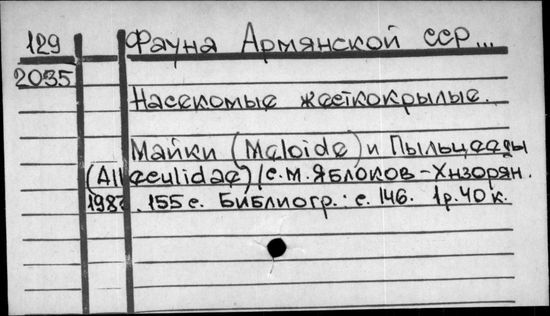 129 Фауна Армянской сср...
2035
Насекомые жесткокрылые.
Майки (Meloide) и Пыльцееды
(Alleculidae) / с.м. Яблоков-Хнзорян.
155 с. Библиогр.: с. 146. 1р. 40 к.